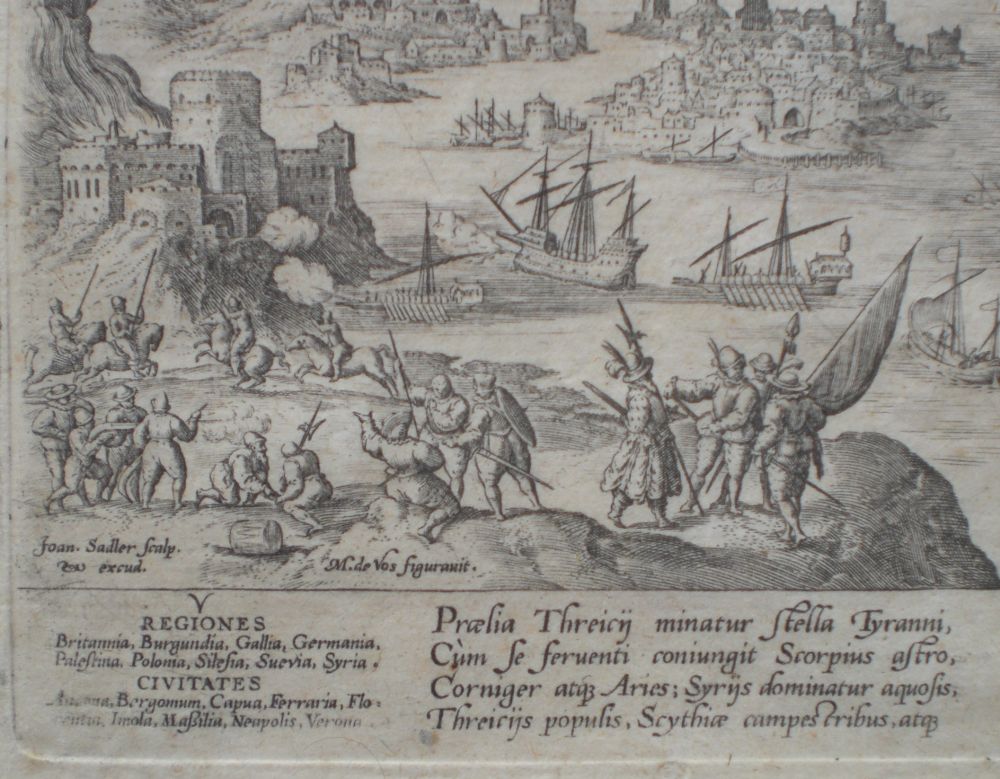 Joan. Sadler scalp.
& excud.
M. de Vos figurauit.
V
REGIONES
Britannia, Burgundia, Gallia, Germania,
Palestina, Polonia, Silesia, Suevia, Syria.
CIVITATES
Ancona, Bergomum, Capua, Ferraria, Flo=
rentia, Imola, Maßilia, Neapolis, Verona
Prælia Threicij minatur stella Tyranni,
Cùm se feruenti coniungit Scorpius astro,
Corniger atq₃ Aries; Syrijs dominatur aquosis,
Threicijs populis, Scythiæ campestribus, atq₃